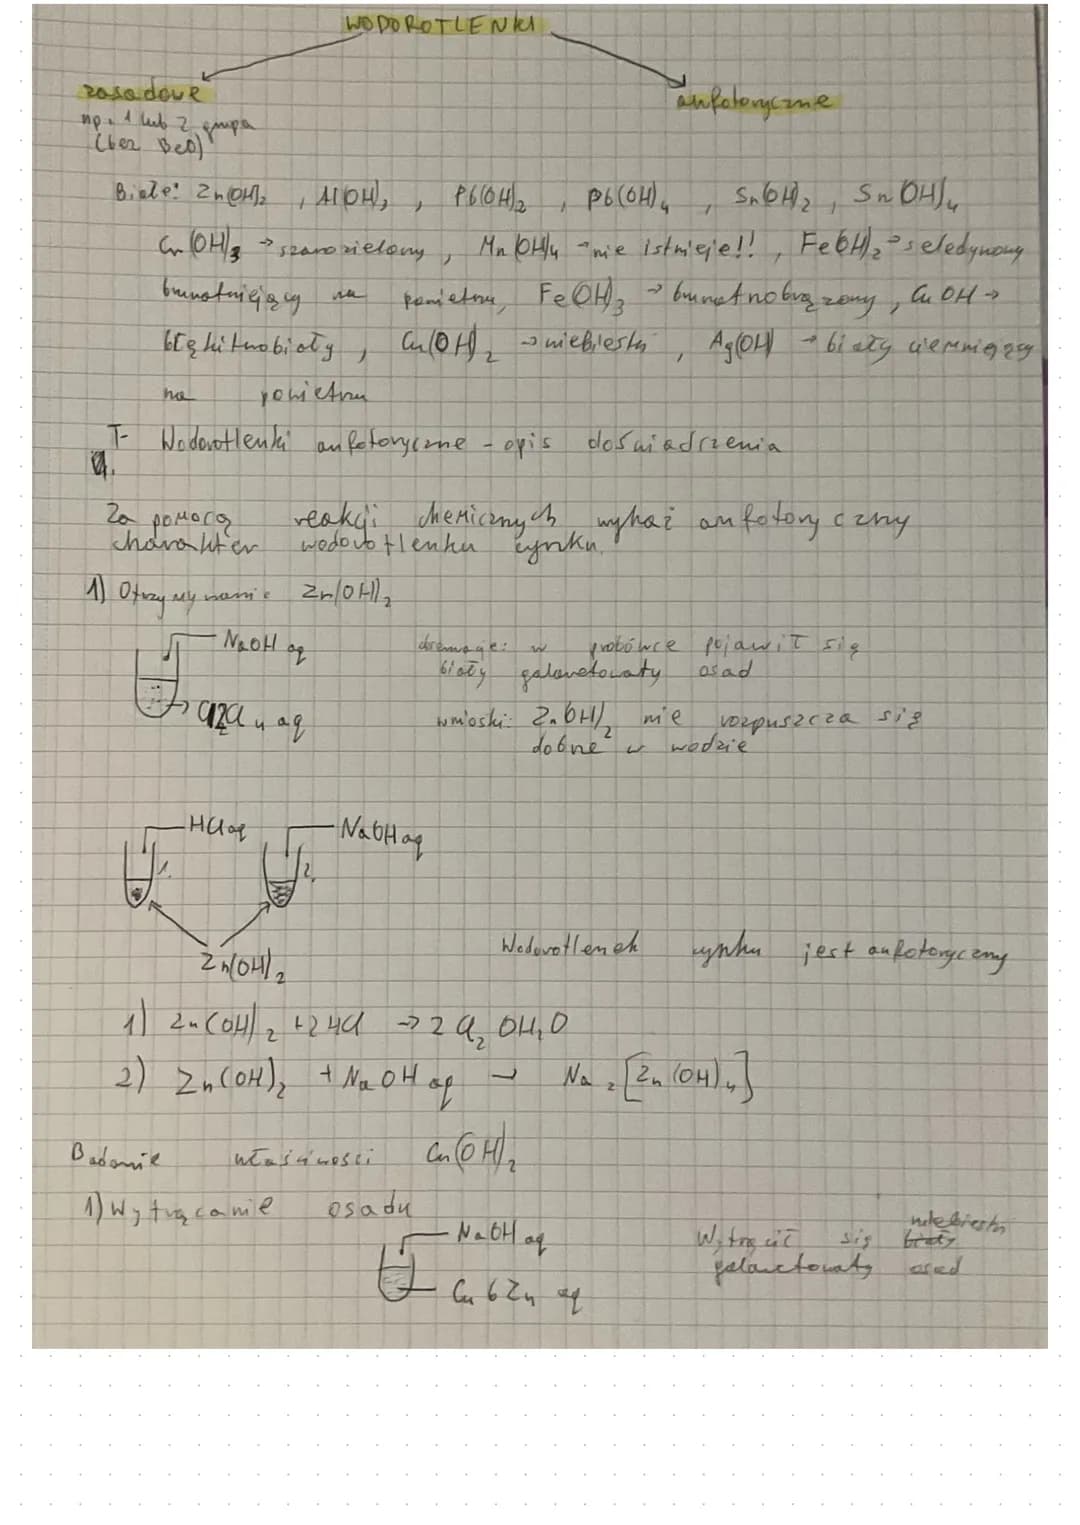 WODOROTLENKI
zasadowe
amfoteryczne
np. 1 lub 2 grupa
(bez BeO)
Białe: Zn(OH)2, Al(OH)3, Pb(OH)2, Pb(OH)4, Sn(OH)2, Sn(OH)4
Cr(OH)3 → szarozielony, Mn(OH)4 → nie istnieje!!, Fe(OH)2 → seledynowy
brunatniejący na powietrzu, Fe(OH)3 → brunatnobrązowy, CuOH →
błękitnobiały, Cu(OH)2 → niebieski, Ag(OH) → biały ciemniejący
na powietrzu
T- Wodorotlenki amfoteryczne - opis doświadczenia
Za pomocą reakcji chemicznych wykaż amfoteryczny
charakter wodorotlenku cynku.
1) Otrzymywanie Zn(OH)2
NaOH aq
obserwacje: w probówce pojawił się
biały galaretowaty osad
aq
wnioski: Zn(OH)2 nie rozpuszcza się
dobrze w wodzie
HCl aq
NaOH aq
1.
2.
Zn(OH)2
Wodorotlenek cynku jest amfoteryczny
1) Zn(OH)2 + 2HCl → 2Cl2 OH2O
2) Zn(OH)2 + NaOH aq → Na2[Zn(OH)4]
Badanie właściwości Cu(OH)2
1) Wytrącanie osadu
NaOH aq
niebieski
Wytrącił się biały
galaretowaty osad
aq